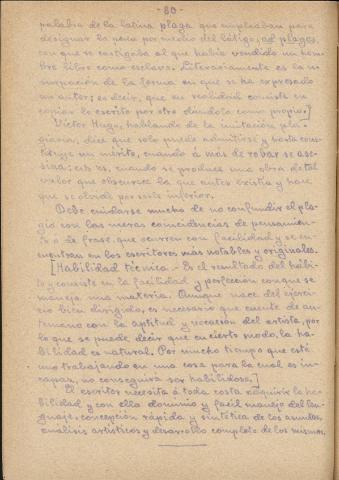 - 80 -
palabra de la latina plaga que empleaban para
designar la pena por medio del látigo, ad plagas,
con que se castigaba al que había vendido un hom-
bre libre como esclavo. Literariamente es la u-
surpación de la forma en que se ha expresado
un autor; es decir, que en realidad consiste en
copiar lo escrito por otro dándolo como propio.]
Victor Hugo, hablando de la imitación pla-
giaria, dice que solo puede admitirse y hasta cons-
tituye un mérito, cuando á más de robar se ase-
sina; esto es, cuando se produce una obra de tal
valor que obscurece la que antes existía y hace
que se olvide por ser inferior.
Debe cuidarse mucho de no confundir el pla-
gio con las meras coincidencias de pensamien-
to o de frase, que ocurren con facilidad y se en-
cuentran en los escritores más notables y originales.
[Habilidad técnica.- Es el resultado del hábi-
to y consiste en la facilidad y perfección con que se
maneja una materia. Aunque nace del ejerci-
cio bien dirigido, es necesario que cuente de an-
temano con la aptitud y vocación del artista, por
lo que se puede decir que en cierto modo, la ha-
bilidad es natural. Por mucho tiempo que esté
uno trabajando en una cosa para la cual es in-
capaz, no conseguirá ser habilidoso.]
El escritor necesita á toda costa adquirir la ha-
bilidad y con ella dominio y facil manejo del len-
guaje, concepción rápida y sintética de los asuntos,
análisis artísticos y desarrollo completo de los mismos.